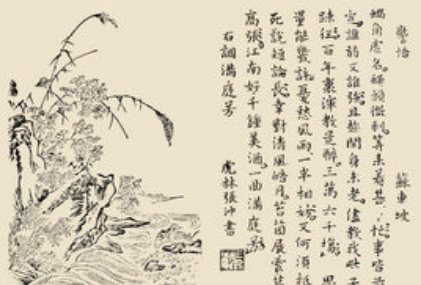 警悟 蘇東坡
蝸角虛名蠅頭微利算來着甚忙事皆
定誰弱又誰強且趁閒身未老儘教我些子
疎狂百年裏渾教是醉三萬六千場 思
量能幾許憂愁風雨一半相妨又何須抵
死說短論長幸對清風皓月苔茵展雲
高張江南好千鍾美酒一曲滿庭芳
右調滿庭芳 虎林張沖書